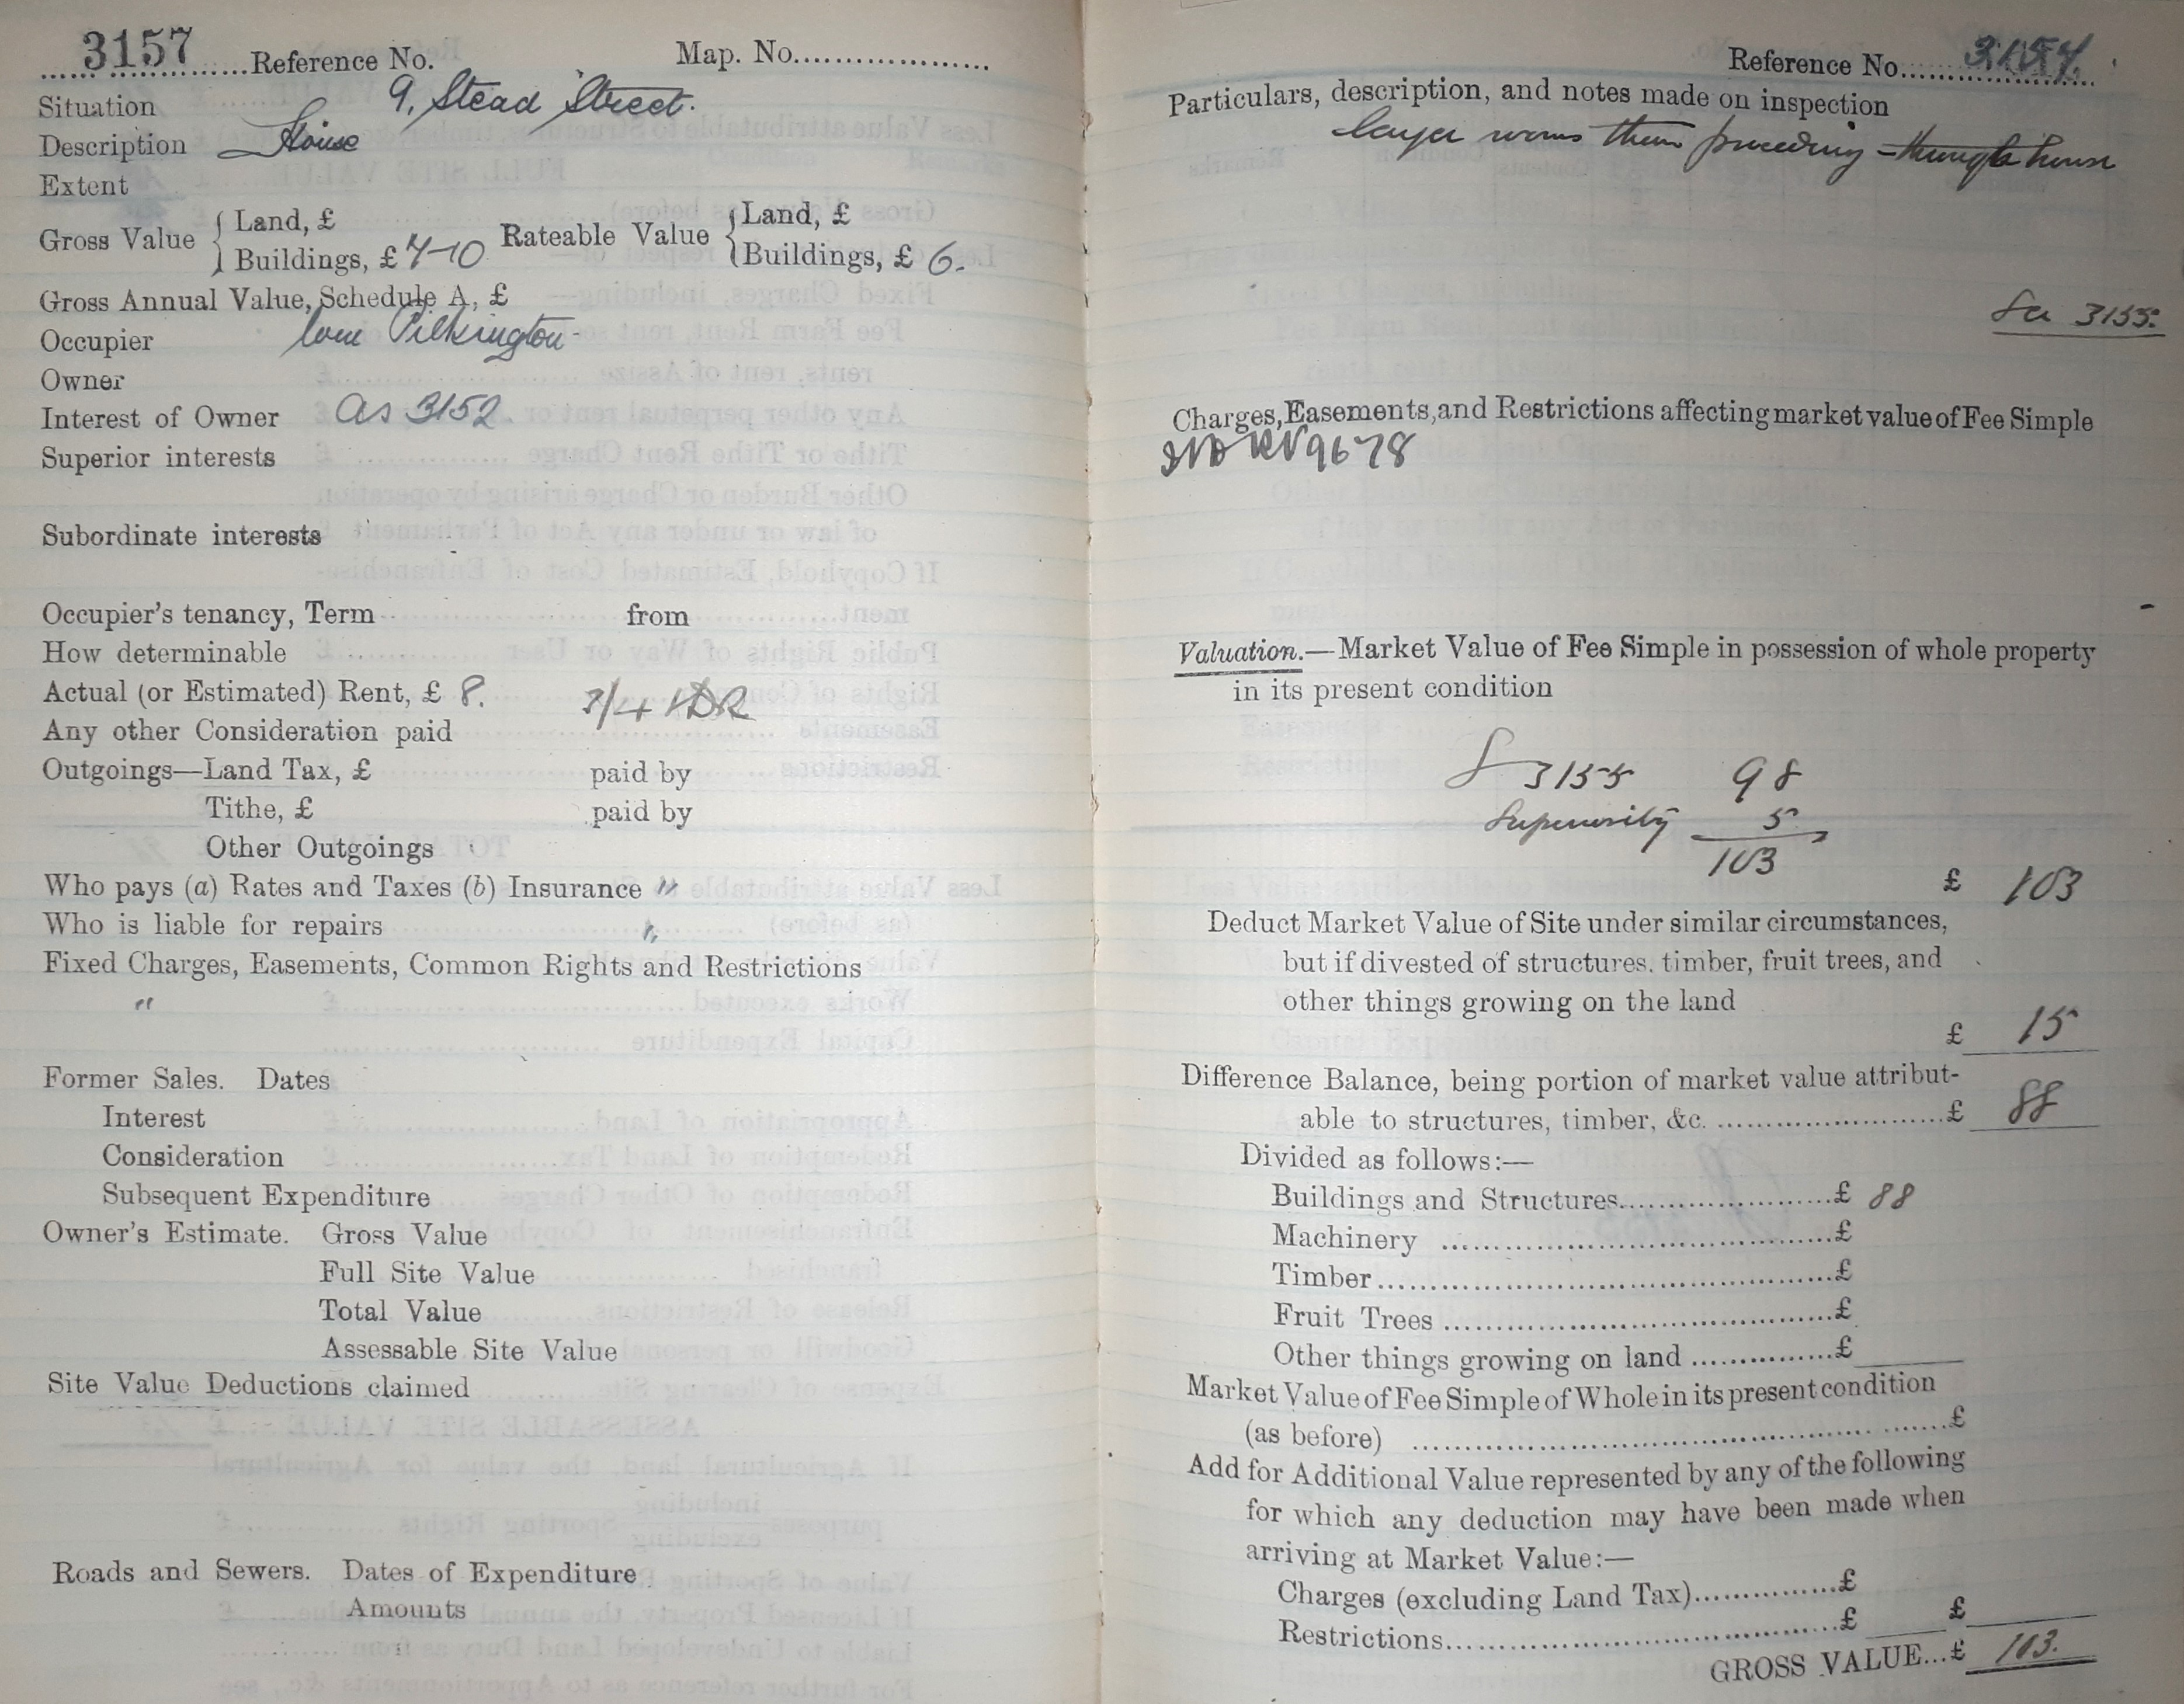 3157 Reference No. Map. No.
Situation 9, Stead Street.
Description House
Extent
Gross Value { Land, £ Rateable Value { Land, £
Buildings, £ 7-10 Buildings, £ 6.
Gross Annual Value, Schedule A, £
Occupier Pilkington
Owner
Interest of Owner as 3152
Superior interests
Subordinate interests
Occupier's tenancy, Term from
How determinable
Actual (or Estimated) Rent, £ 8. 3/4
Any other Consideration paid
Outgoings—Land Tax, £ paid by
Tithe, £ paid by
Other Outgoings
Who pays (a) Rates and Taxes (b) Insurance "
Who is liable for repairs "
Fixed Charges, Easements, Common Rights and Restrictions
"
Former Sales. Dates
Interest
Consideration
Subsequent Expenditure
Owner's Estimate. Gross Value
Full Site Value
Total Value
Assessable Site Value
Site Value Deductions claimed
Roads and Sewers. Dates of Expenditure
Amounts
Reference No.
Particulars, description, and notes made on inspection
larger rooms than preceding - through house
3155.
Charges, Easements, and Restrictions affecting market value of Fee Simple
9678
Valuation.—Market Value of Fee Simple in possession of whole property
in its present condition
3155 98
Superiority 5
103
£ 103
Deduct Market Value of Site under similar circumstances,
but if divested of structures, timber, fruit trees, and
other things growing on the land
£ 15
Difference Balance, being portion of market value attribut-
able to structures, timber, &c. £ 88
Divided as follows:—
Buildings and Structures £ 88
Machinery £
Timber £
Fruit Trees £
Other things growing on land £
Market Value of Fee Simple of Whole in its present condition
(as before) £
Add for Additional Value represented by any of the following
for which any deduction may have been made when
arriving at Market Value:—
Charges (excluding Land Tax) £
Restrictions £ £
GROSS VALUE...£ 103.